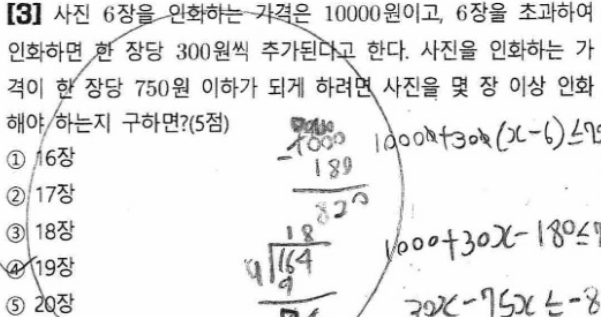 [3] 사진 6장을 인화하는 가격은 10000원이고, 6장을 초과하여
인화하면 한 장당 300원씩 추가된다고 한다. 사진을 인화하는 가
격이 한 장당 750원 이하가 되게 하려면 사진을 몇 장 이상 인화
해야 하는지 구하면?(5점)
① 16장
② 17장
③ 18장
④ 19장
⑤ 20장
1000
-180
820
18
9)164
9
10000+300(x-6)≤75
1000+30x-180≤7
30x-75x≤-8